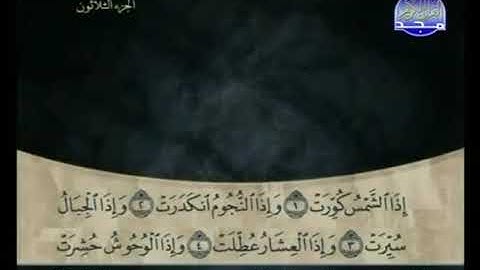 الجزء الثلاثون
مجد
إِذَا ٱلشَّمْسُ كُوِّرَتْ ١ وَإِذَا ٱلنُّجُومُ ٱنكَدَرَتْ ٢ وَإِذَا ٱلْجِبَالُ
سُيِّرَتْ ٣ وَإِذَا ٱلْعِشَارُ عُطِّلَتْ ٤ وَإِذَا ٱلْوُحُوشُ حُشِرَتْ